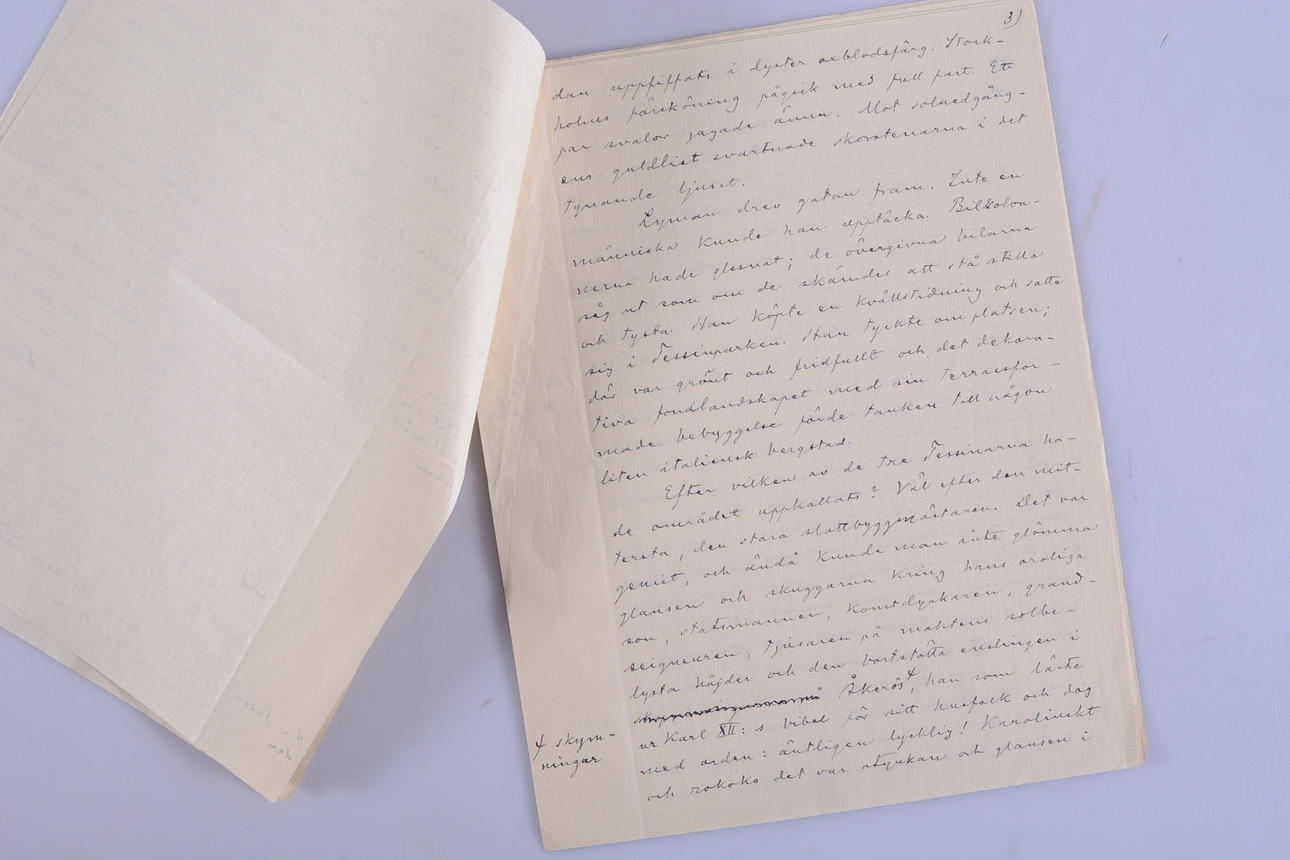 3)
dan uppfiffats i dyster oxblodsfärg. Stock-
holms försköning pågick med full fart. Ett
par svalor jagade ännu. Mot solnedgång-
ens guldlist svartnade skorstenarna i det
tynande ljuset.
Lyman drev gatan fram. Inte en
människa kunde han upptäcka. Bilkolon-
nerna hade glesnat; de övergivna bilarna
såg ut som om de skämdes att stå stilla
och tysta Han köpte en kvällstidning och satte
sig i Tessinparken. Han tyckte om platsen;
där var grönt och fridfullt och det dekora-
tiva fondlandskapet med sin terrassfor-
made bebyggelse förde tanken till någon
liten italiensk bergstad.
Efter vilken av de tre Tessinarna ha-
de området uppkallats? Väl efter den mit-
tersta, den stora slottbyggmästaren. Det var
geniet, och ändå kunde man inte glömma
glansen och skuggorna kring hans oroliga
son, statsmannen, konstdyrkaren, grand-
seigneuren, tjusaren på maktens solbe-
lysta höjder och den bortstötta enslingen i
Åkerös, han som läste
ur Karl XII:s bibel för sitt husfolk och dog
med orden: äntligen lycklig! Karolinskt
och rokoko det var styrkan och glansen i
skym-
ningar